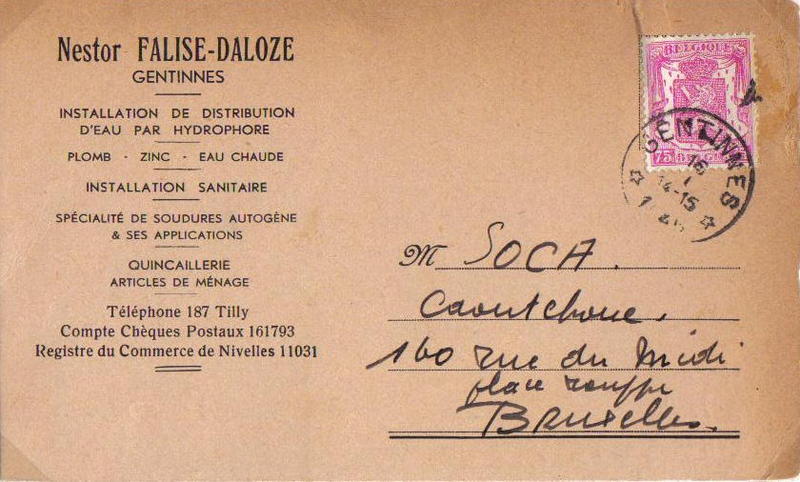 Nestor FALISE-DALOZE
GENTINNES
INSTALLATION DE DISTRIBUTION
D'EAU PAR HYDROPHORE
PLOMB - ZINC - EAU CHAUDE
INSTALLATION SANITAIRE
SPÉCIALITÉ DE SOUDURES AUTOGÈNE
& SES APPLICATIONS
QUINCAILLERIE
ARTICLES DE MÉNAGE
Téléphone 187 Tilly
Compte Chèques Postaux 161793
Registre du Commerce de Nivelles 11031
BELGIQUE
75 BELGIË
GENTINNES
16
1
14-15
M SOCA.
Caoutchouc.
160 rue du Midi
place rouppe
Bruxelles.